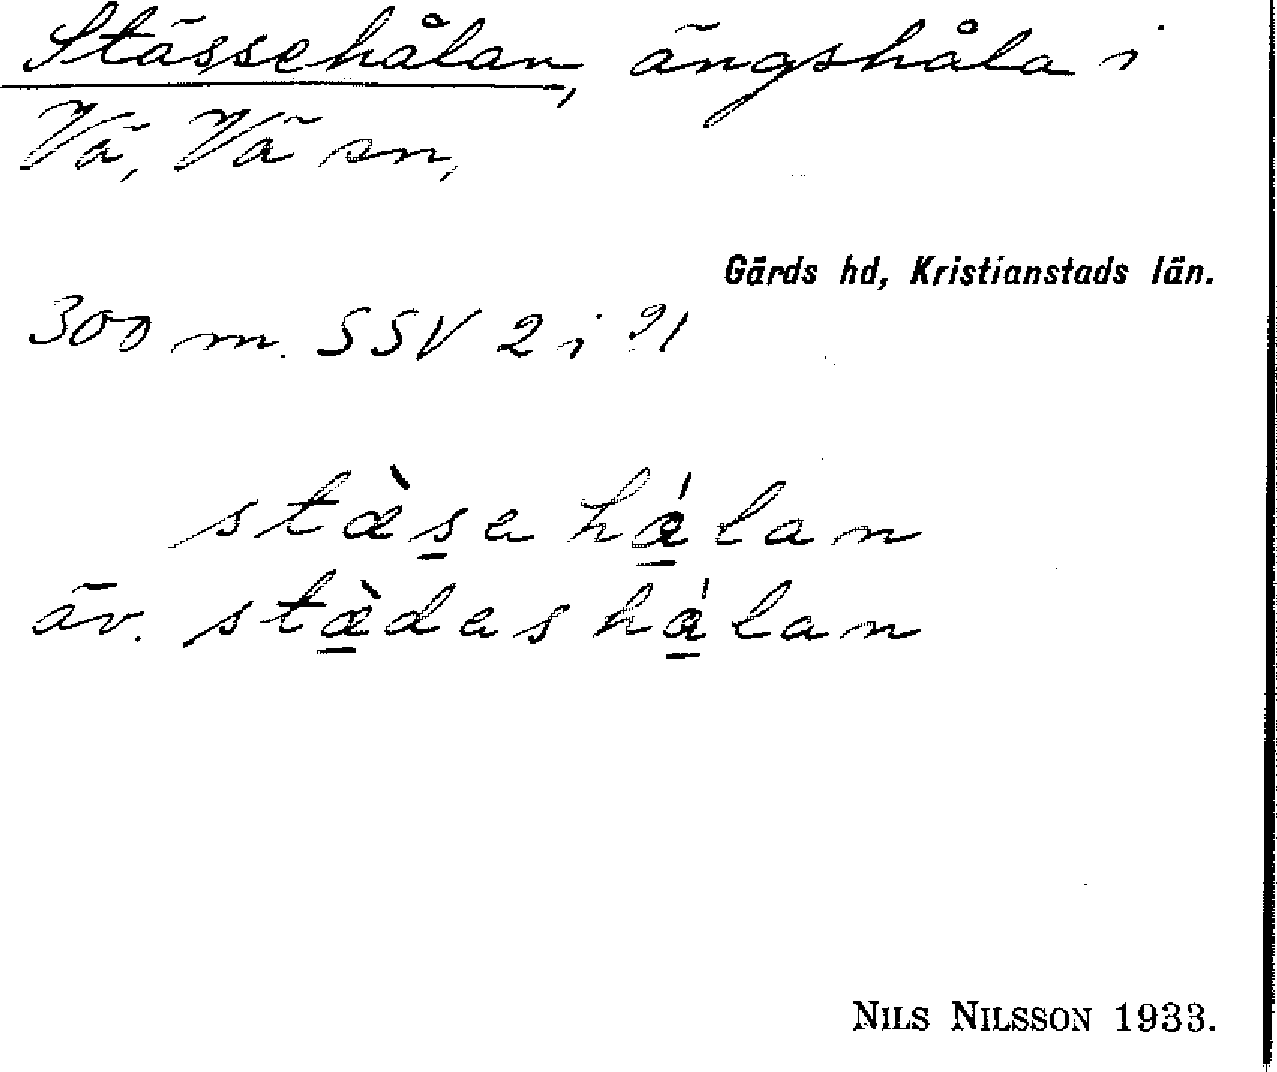 Stässehålan, ängshåla i
Vä, Vä sn,
Gärds hd, Kristianstads län.
300 m. SSV 2 i 21
stæ̀s̲e há̲lan
äv. stæ̲̀des há̲lan
NILS NILSSON 1933.